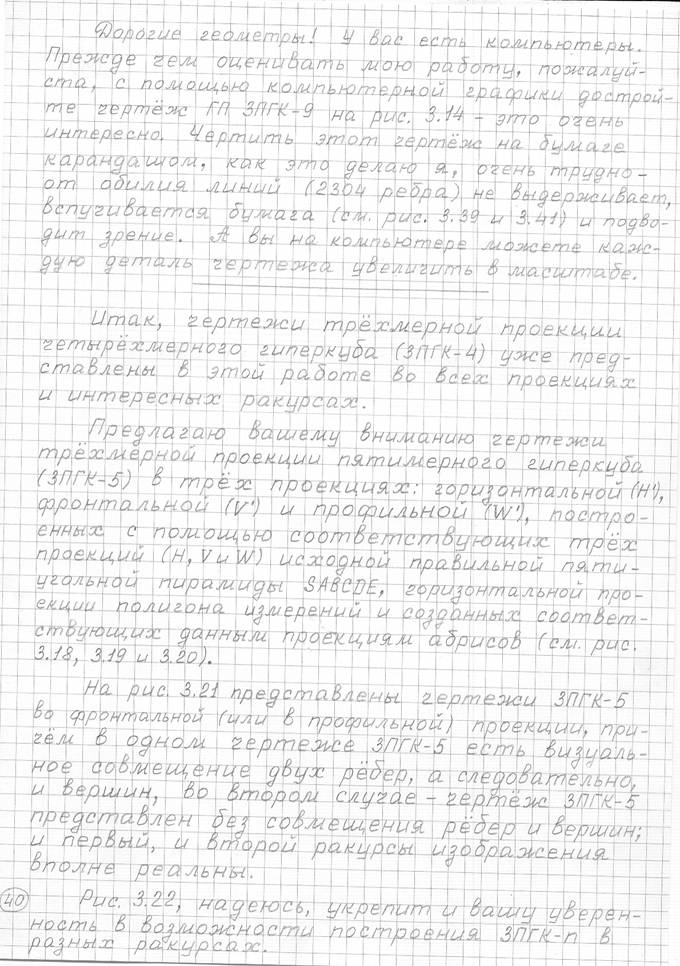 Дорогие геометры! У вас есть компьютеры.
Прежде чем оценивать мою работу, пожалуй-
ста, с помощью компьютерной графики достройте
те чертёж ГП 3ПГК-9 на рис. 3.14 – это очень
интересно. Чертить этот чертёж на бумаге
карандашом, как это делаю я, очень трудно–
от обилия линий (2304 ребра) не выдерживает,
вспучивается бумага (см. рис. 3.39 и 3.41) и подво-
дит зрение. А вы на компьютере можете каж-
дую деталь чертежа увеличить в масштабе.
Итак, чертежи трёхмерной проекции
четырёхмерного гиперкуба (3ПГК-4) уже пред-
ставлены в этой работе во всех проекциях
и интересных ракурсах.
Предлагаю вашему вниманию чертежи
трёхмерной проекции пятимерного гиперкуба
(3ПГК-5) в трёх проекциях: горизонтальной (H'),
фронтальной (V') и профильной (W'), постро-
енных с помощью соответствующих трёх
проекций (H, V и W) исходной правильной пяти-
угольной пирамиды SABCDE, горизонтальной про-
екции полигона измерений и созданных соответ-
ствующих данным проекциям абрисов (см. рис.
3.18, 3.19 и 3.20).
На рис. 3.21 представлены чертежи 3ПГК-5
во фронтальной (или в профильной) проекции, при-
чём в одном чертеже 3ПГК-5 есть визуаль-
ное совмещение двух рёбер, а следовательно,
и вершин, во втором случае – чертёж 3ПГК-5
представлен без совмещения рёбер и вершин;
и первый, и второй ракурсы изображения
вполне реальны.
40 Рис. 3.22, надеюсь, укрепит и вашу уверен-
ность в возможности построения 3ПГК-n в
разных ракурсах.